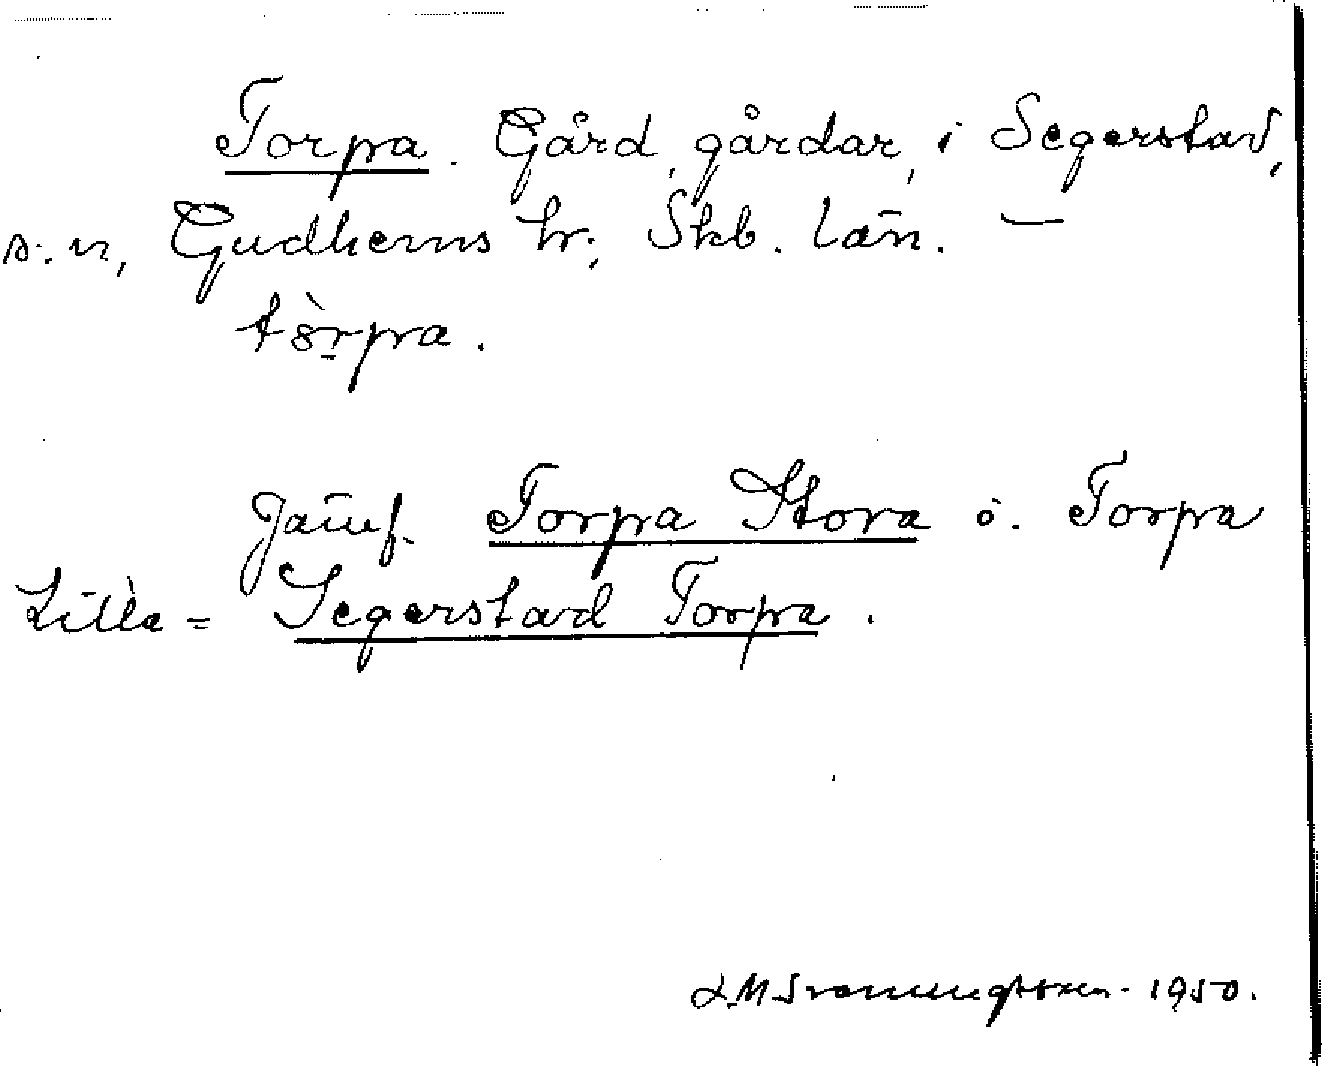 Torpa. Gård, gårdar, i Segerstad,
s.n, Gudhems hr, Skb. län. —
tȍrpa.
Jämf. Torpa Stora o. Torpa
Lilla = Segerstad Torpa.
1950.